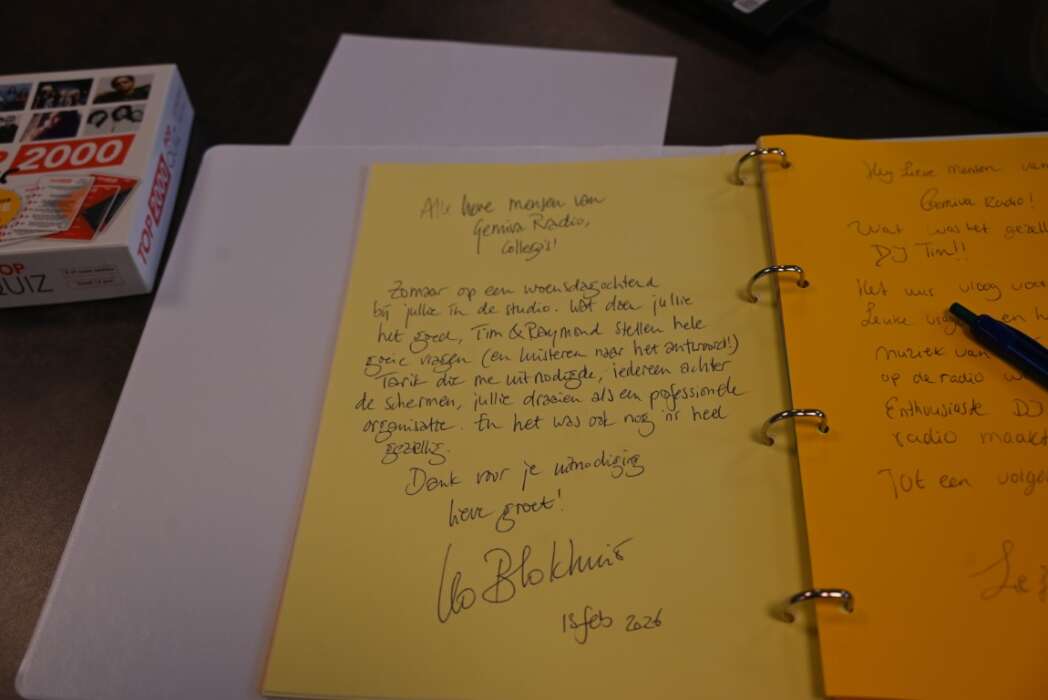 2000
TOP 2000
TOP
QUIZ
Alle lieve mensen van
Gemiva Radio,
collega's!
Zomaar op een woensdagochtend
bij jullie in de studio. Wat doen jullie
het goed, Tim & Raymond stellen hele
goeie vragen (en luisteren naar het antwoord!)
Tarik die me uitnodigde, iedereen achter
de schermen, jullie draaien als een professionele
organisatie. En het was ook nog 'ns heel
gezellig.
Dank voor je uitnodiging
lieve groet!
Leo Blokhuis
feb 2026
Hey lieve mensen van
Gemiva Radio!
Wat was het gezell
DJ Tim!!
Het uur vloog voor
Leuke en h
muziek van
op de radio
Enthousiaste DJ
radio maakt
Tot een volge